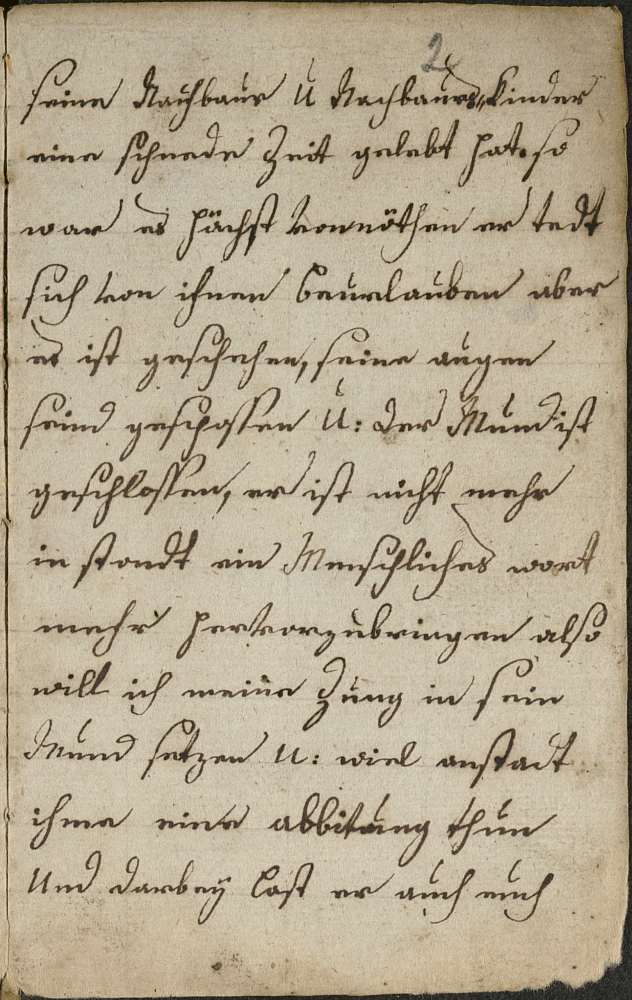 2
seine Nachbaur U Nachbaurs Kinder
eine schnede Zeit gelebt hat. so
war es höchst vonnöthen er tedt
sich von ihnen beurlauben aber
es ist geschehen, seine augen
seind geschossen U: der Mund ist
geschlossen, er ist nicht mehr
in standt ein Menschliches wort
mehr hervorzubringen also
will ich meine Zung in sein
Mund setzen U: wiel anstadt
ihme eine abbittung thun
Und darbey last er auch euch